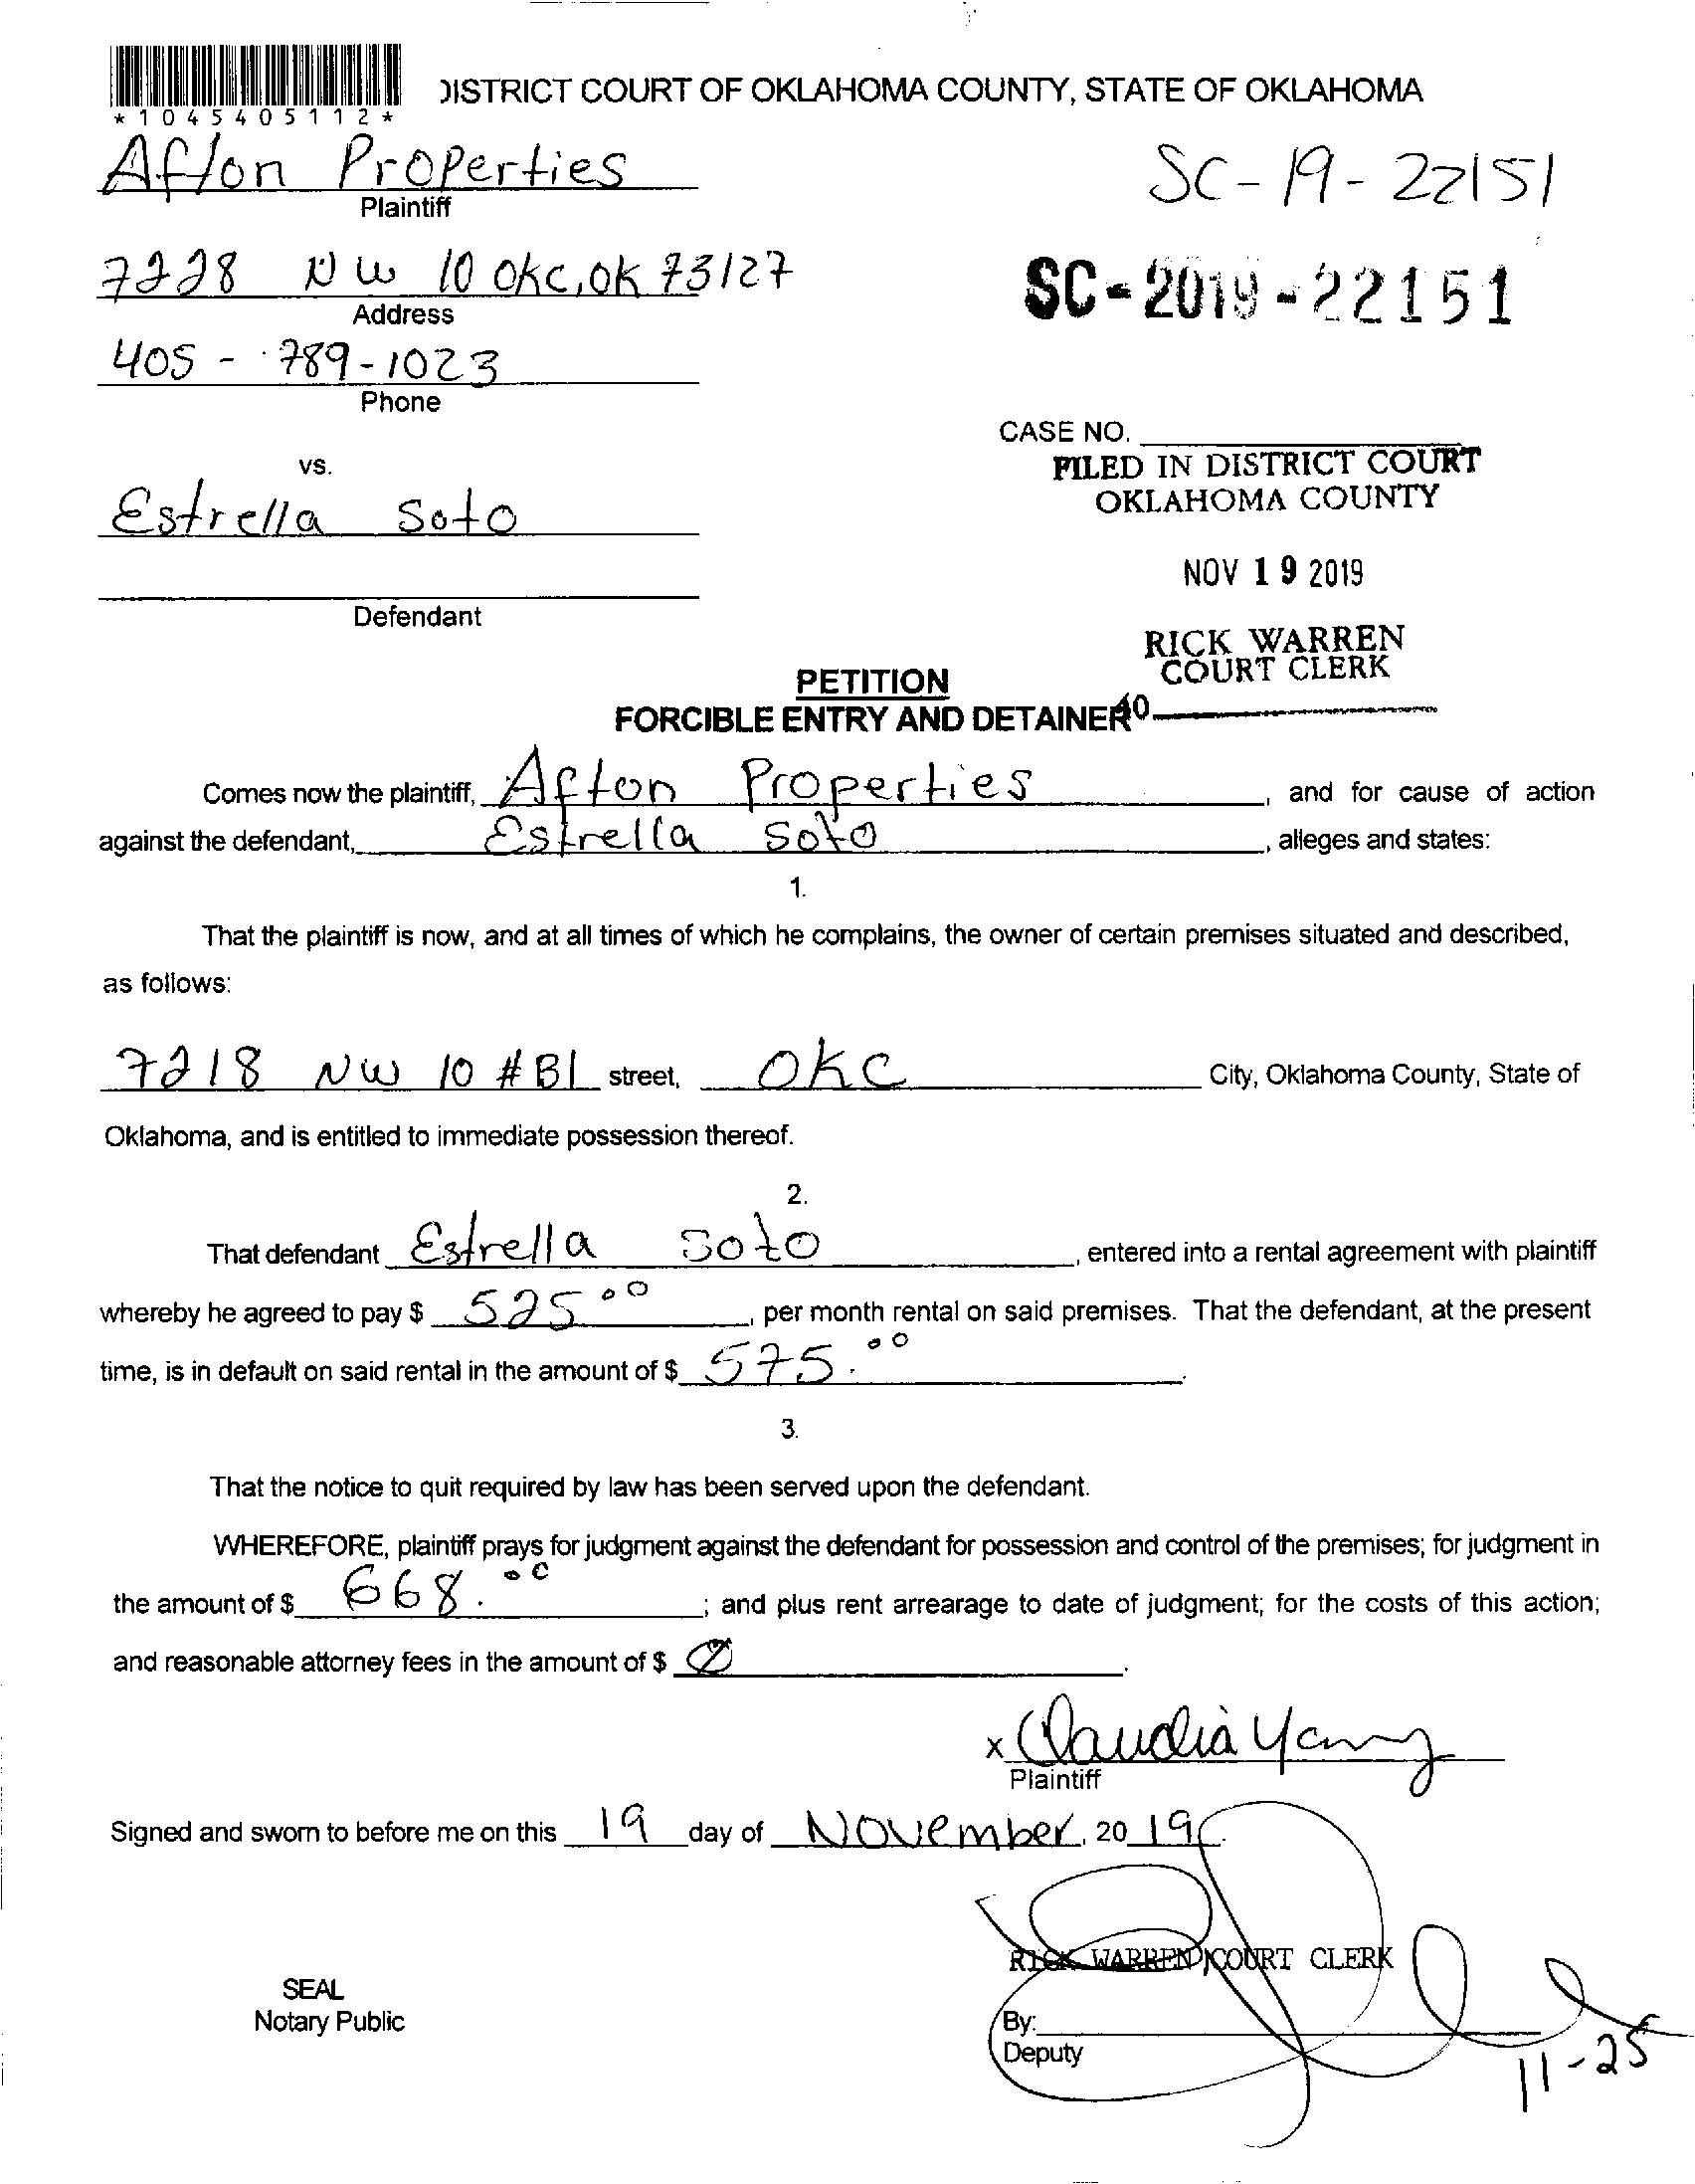 *1045405112*
DISTRICT COURT OF OKLAHOMA COUNTY, STATE OF OKLAHOMA
Afton Properties
Plaintiff
SC-19-22151
7228 NW 10 OKC, OK 73127
Address
SC-2019-22151
405-789-1023
Phone
CASE NO.
vs.
FILED IN DISTRICT COURT
OKLAHOMA COUNTY
Estrella Soto
NOV 19 2019
Defendant
RICK WARREN
COURT CLERK
PETITION
FORCIBLE ENTRY AND DETAINER
40
Comes now the plaintiff, Afton Properties, and for cause of action
against the defendant, Estrella Soto, alleges and states:
1.
That the plaintiff is now, and at all times of which he complains, the owner of certain premises situated and described,
as follows:
7218 NW 10 #B1 street, OKC City, Oklahoma County, State of
Oklahoma, and is entitled to immediate possession thereof.
2.
That defendant Estrella Soto, entered into a rental agreement with plaintiff
whereby he agreed to pay $ 525.00, per month rental on said premises. That the defendant, at the present
time, is in default on said rental in the amount of $ 575.00.
3.
That the notice to quit required by law has been served upon the defendant.
WHEREFORE, plaintiff prays for judgment against the defendant for possession and control of the premises; for judgment in
the amount of $ 668.00; and plus rent arrearage to date of judgment; for the costs of this action;
and reasonable attorney fees in the amount of $ Ø.
x Claudia Yanez
Plaintiff
Signed and sworn to before me on this 19 day of November, 2019.
RICK WARREN COURT CLERK
SEAL
Notary Public
By:
Deputy
11-25